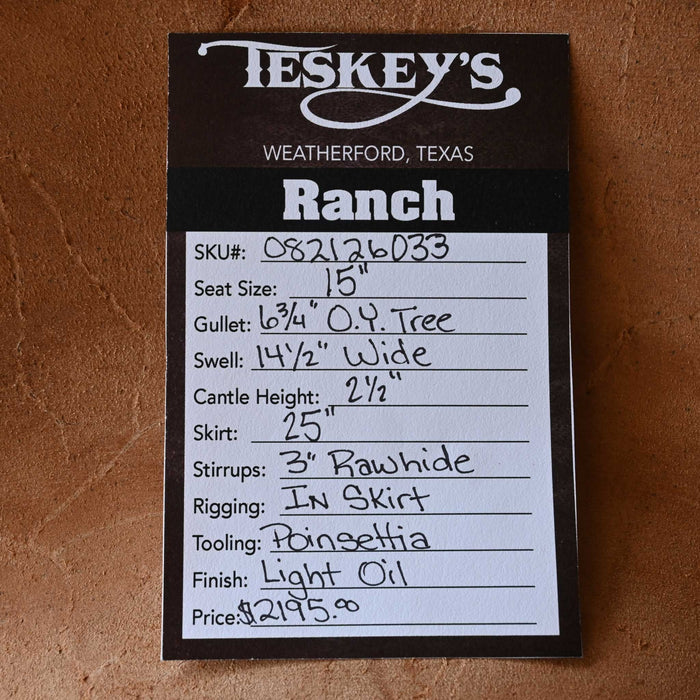 TESKEY'S
WEATHERFORD, TEXAS
Ranch
SKU#: 082126033
Seat Size: 15"
Gullet: 6 3/4" O.Y. Tree
Swell: 14 1/2" Wide
Cantle Height: 2 1/2"
Skirt: 25"
Stirrups: 3" Rawhide
Rigging: In Skirt
Tooling: Poinsettia
Finish: Light Oil
Price: $2195.00